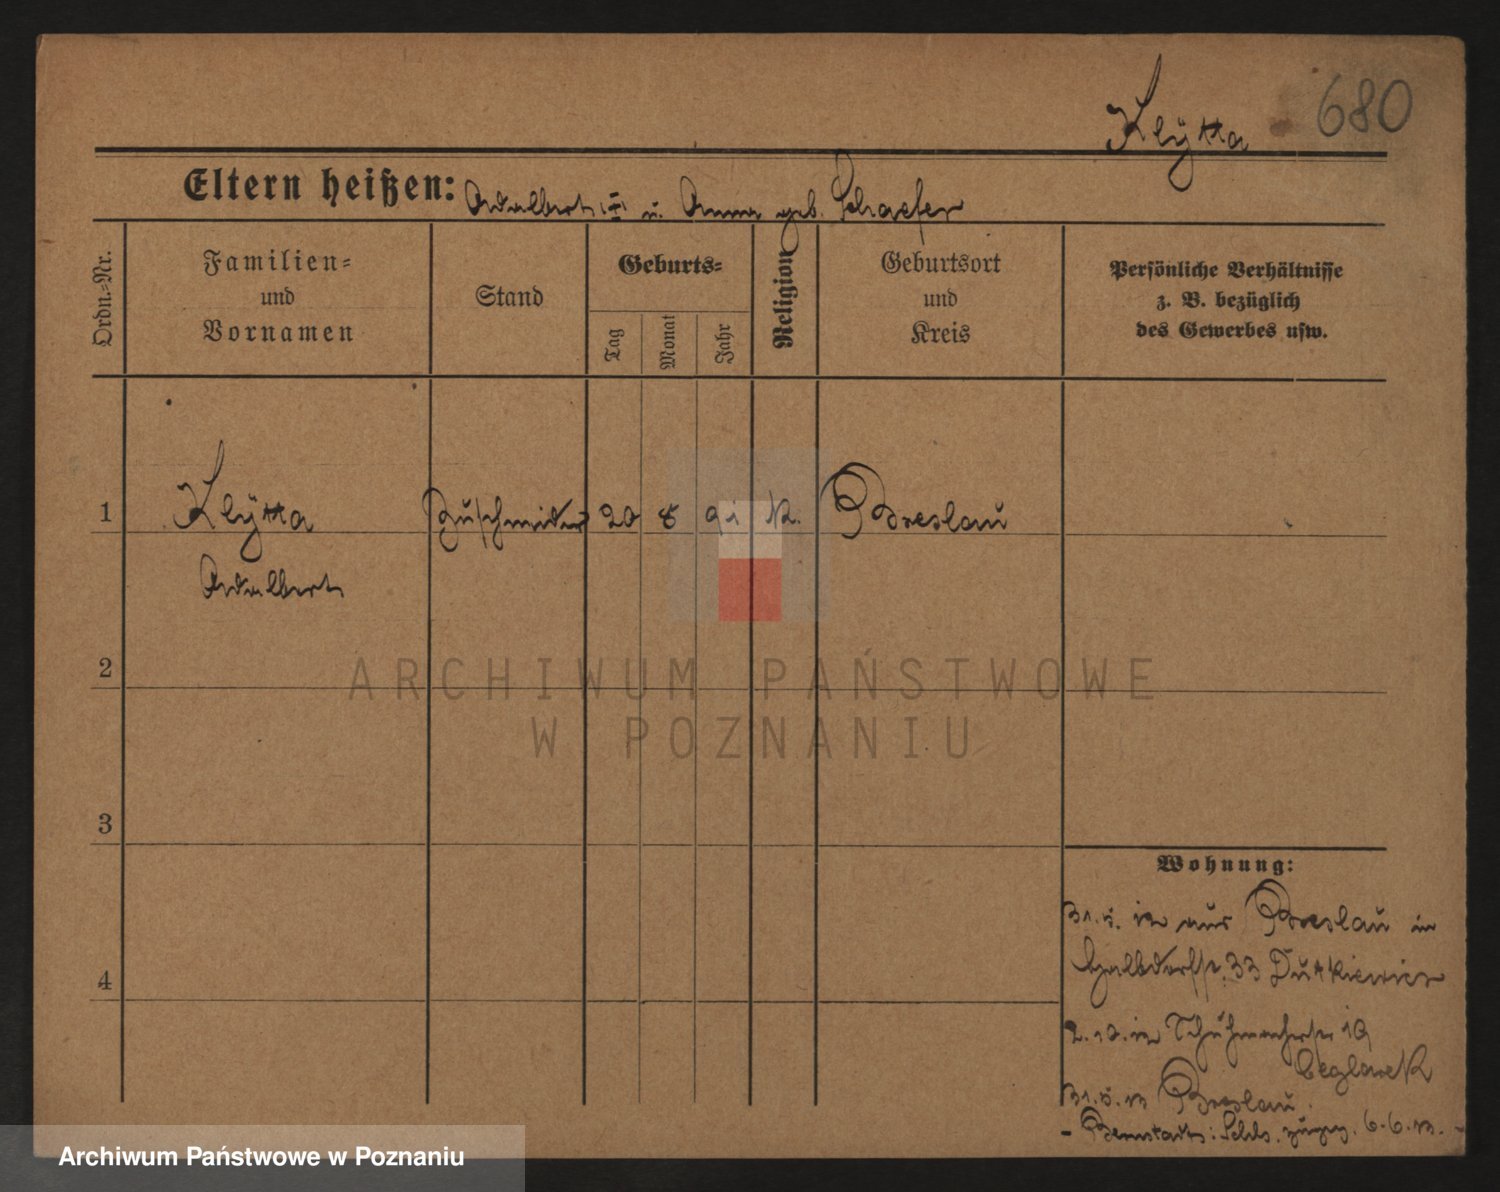 Klÿtta 680
Eltern heißen: Adalbert u. Anna geb. Schaefer
Ordn.-Nr.
Familien-
und
Vornamen
Stand
Geburts-
Tag
Monat
Jahr
Religion
Geburtsort
und
Kreis
Persönliche Verhältnisse
z. B. bezüglich
des Gewerbes usw.
1 Klÿtta Zuschneider 20 8 91 K. Breslau
Adalbert
2
ARCHIWUM PAŃSTWOWE
W POZNANIU
3
Wohnung:
31.5.12 aus Breslau in
Halbdorfstr. 33 Dutkiewicz
4
2.10.12 Schuhmacherstr 19
Ceglarek
31.5.13 Breslau.
- Bernstadt i. Schls. 6.6.13. -
Archiwum Państwowe w Poznaniu